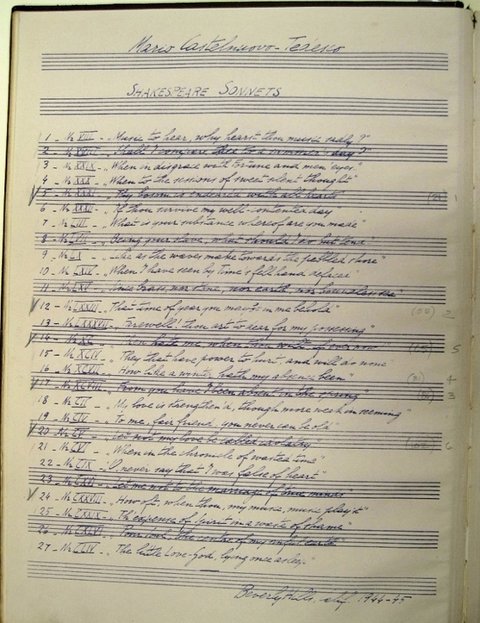 Mario Castelnuovo-Tedesco
SHAKESPEARE SONNETS
1 - No VIII - "Music to hear, why hear'st thou music sadly?"
2 - No XVIII - "Shall I compare thee to a summer's day?"
3 - No XXIX - "When in disgrace with fortune and men's eyes"
4 - No XXX - "When to the sessions of sweet silent thought"
5 - No XXXI - "Thy bosom is endeared with all hearts"
6 - No XXXII - "If thou survive my well-contented day"
7 - No LIII - "What is your substance whereof are you made"
8 - No LVII - "Being your slave, what should I do but tend
9 - No LX - "Like as the waves make towards the pebbled shore"
10 - No LXIV - "When I have seen by Time's fell hand defaced"
11 - No LXV - "Since brass, nor stone, nor earth, nor boundless sea"
12 - No LXXIII - "That time of year you may'st in me behold"
13 - No LXXXVII - "Farewell! thou art too dear for my possessing"
14 - No XC - "Then hate me when thou wilt, if ever, now"
15 - No XCIV - "They that have power to hurt and will do none
16 - No XCVII - "How like a winter hath my absence been"
17 - No XCVIII - "From you have I been absent in the spring"
18 - No CII - "My love is strengthen'd, though more weak in seeming"
19 - No CIV - "To me, fair friend, you never can be old"
20 - No CV - "Let not my love be called idolatry
21 - No CVI - "When in the chronicle of wasted time"
22 - No CIX - "O never say that I was false of heart"
23 - No CXVI - "Let me not to the marriage of true minds
24 - No CXXVIII - "How oft, when thou, my music, music play'st"
25 - No CXXIX - "Th'expense of spirit in a waste of shame"
26 - No CXLVI - "Poor soul, the centre of my sinful earth"
27 - No CLIV - "The little Love-god, lying once asleep"
Beverly Hills, Calif. 1944-45